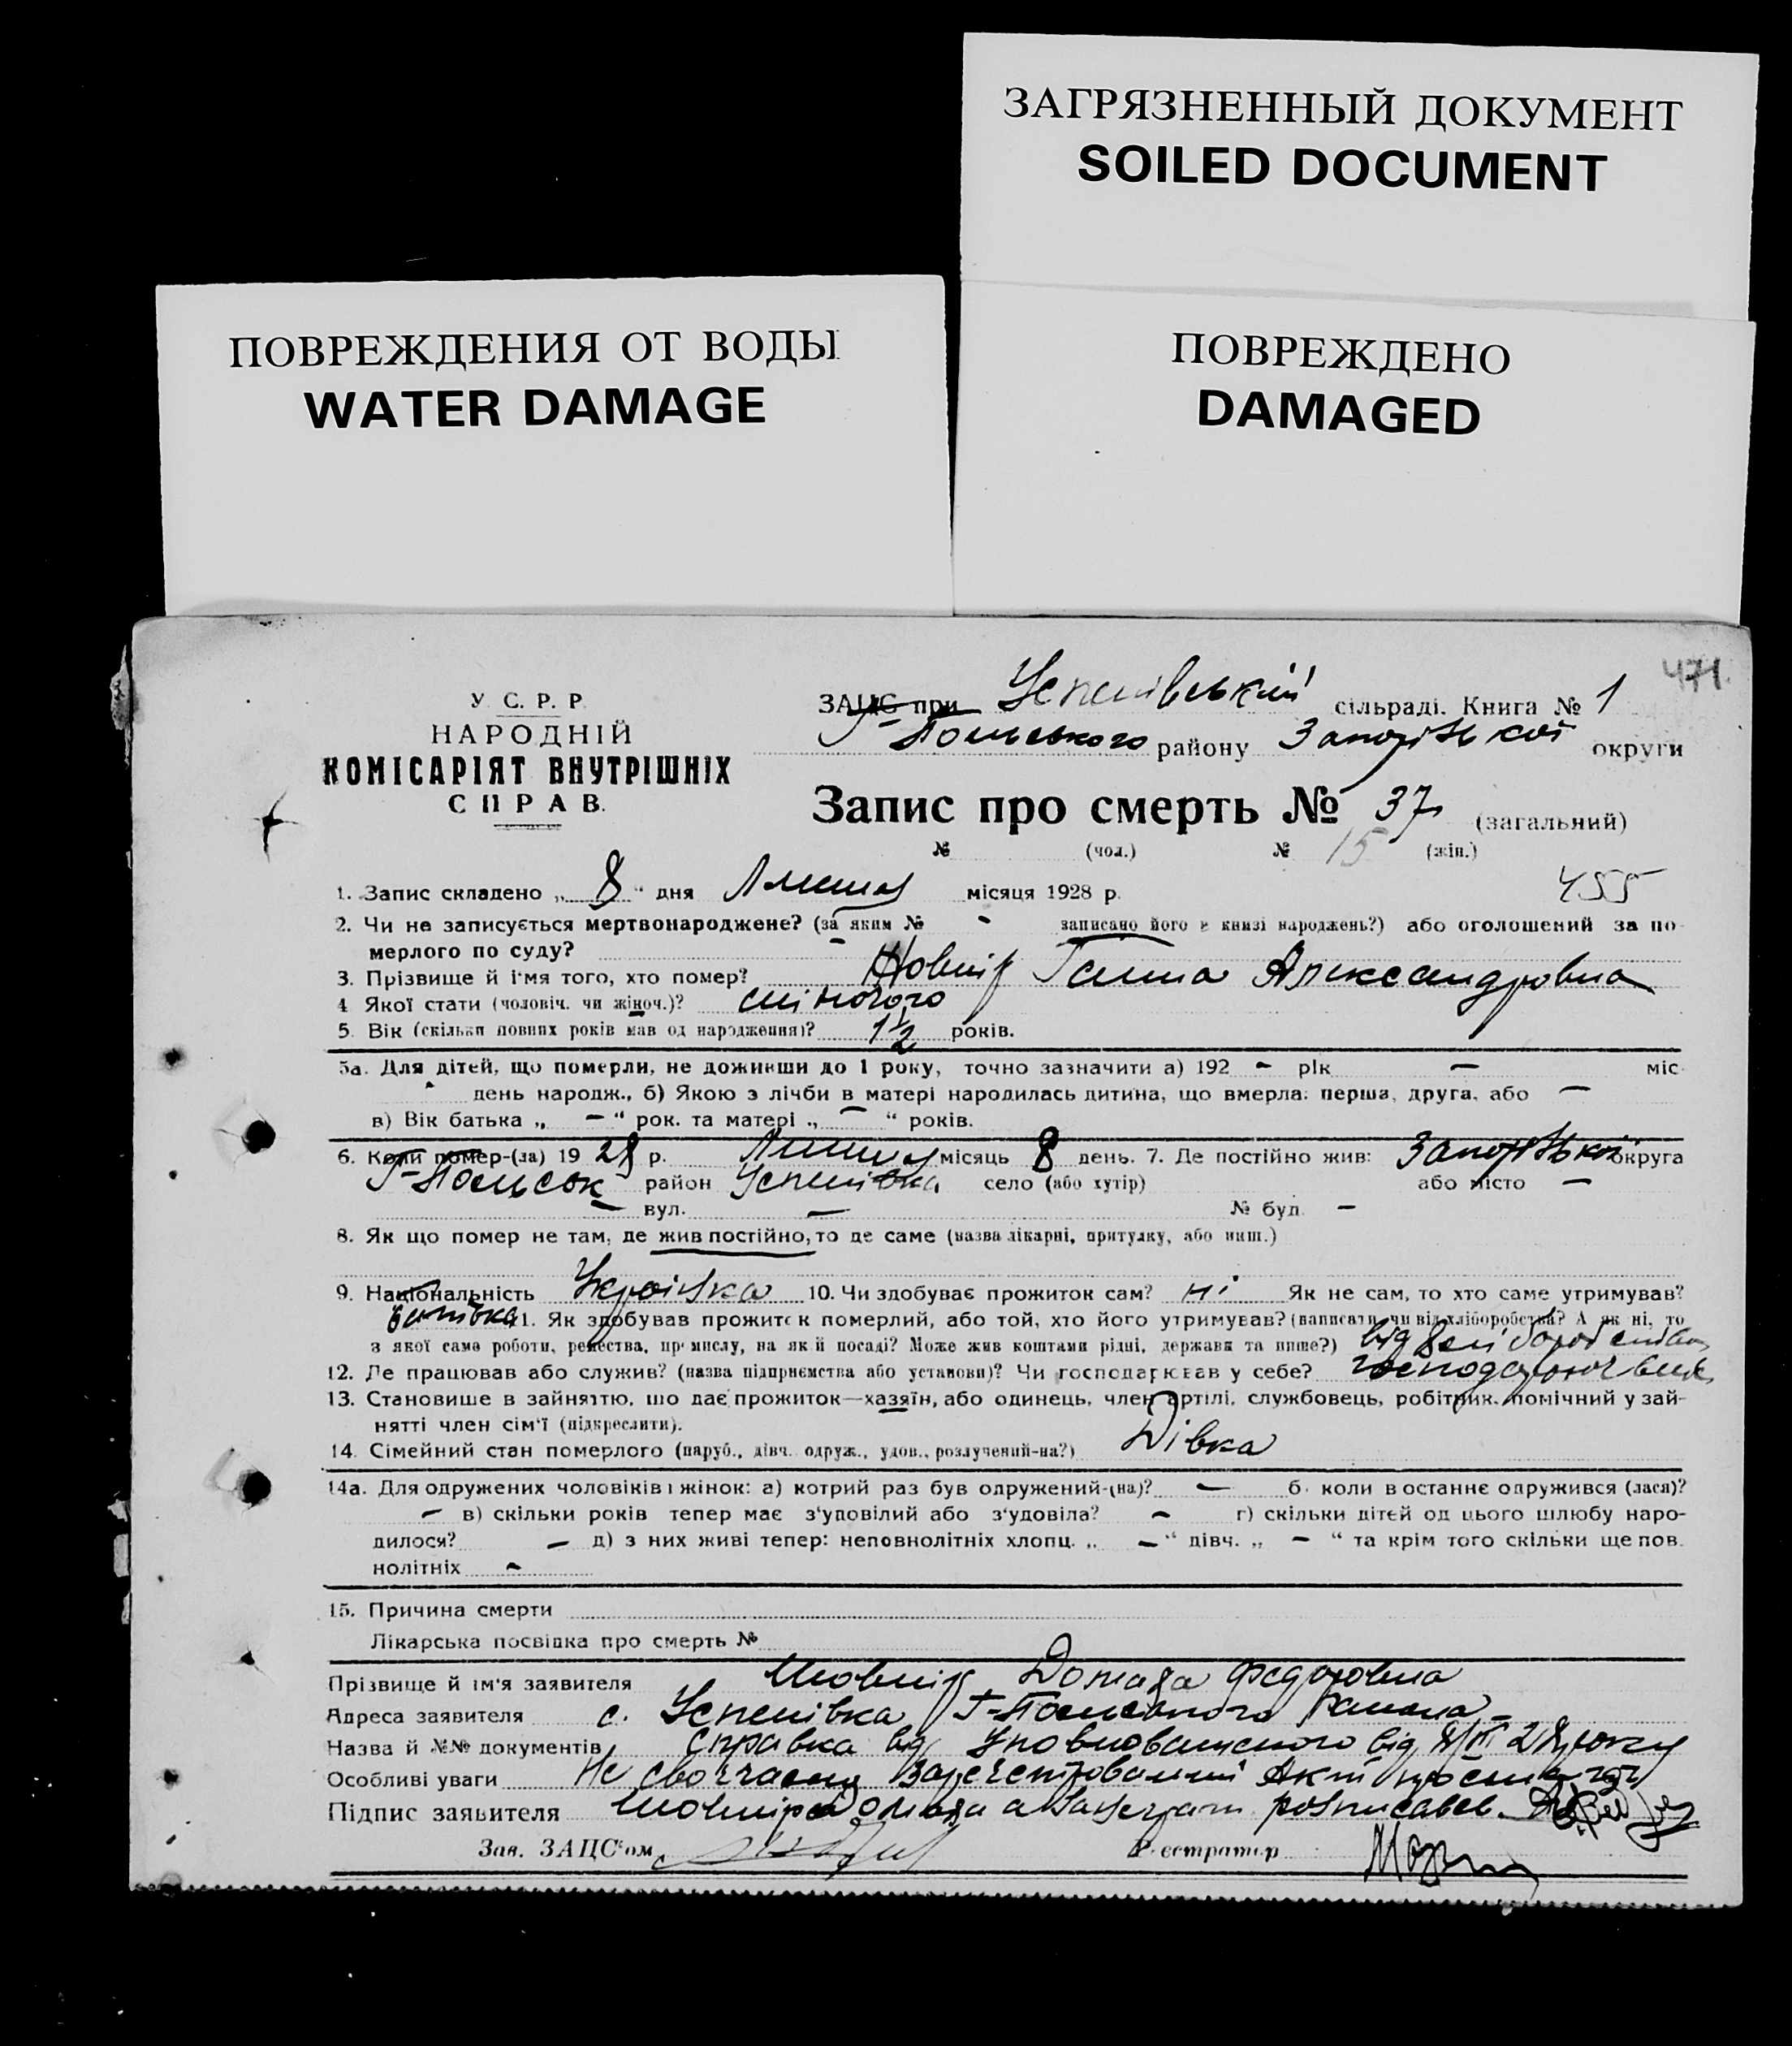 ЗАГРЯЗНЕННЫЙ ДОКУМЕНТ
SOILED DOCUMENT
ПОВРЕЖДЕНИЯ ОТ ВОДЫ
WATER DAMAGE
ПОВРЕЖДЕНО
DAMAGED
471
У С. Р. Р.
НАРОДНІЙ
КОМІСАРІЯТ ВНУТРІШНІХ
СПРАВ.
ЗАЦС при Успенівській сільраді. Книга № 1
Г-Польського району Запорізької округи
Запис про смерть № 37 (загальний)
№ (чол.) № 15 (жін.)
455
1. Запис складено „ 8 " дня Липня місяця 1928 р.
2. Чи не записується мертвонароджене? (за яким № - записано його в книзі народжень?) або оголошений за по-
мерлого по суду?
3. Прізвище й ім'я того, хто помер? Ганна Александровна
4 Якої стати (чоловіч. чи жіноч.)?
5. Вік (скільки повних років мав од народження)? 1 1/2 років.
5а. Для дітей, що померли, не доживши до 1 року, точно зазначити а) 192 - рік — міс
день народж., б) Якою з лічби в матері народилась дитина, що вмерла: перша, друга, або —
в) Вік батька „ — " рок. та матері „ — " років.
6. Коли помер-(ла) 19 28 р. Липня місяць 8 день. 7. Де постійно жив: Запорізької округа
Г-Польськ район Успенівка село (або хутір) або місто —
— вул. — № буд. —
8. Як що помер не там, де жив постійно, то де саме (назва лікарні, притулку, або инш.)
9. Національність Українка 10. Чи здобуває прожиток сам? ні Як не сам, то хто саме утримував?
батько 11. Як здобував прожиток померлий, або той, хто його утримував? (написати чи від хліборобства? А як ні, то
з якої саме роботи, ремества, промислу, на якій посаді? Може жив коштами рідні, держави та инше?) від
12. Де працював або служив? (назва підприємства або установи)? Чи господарював у себе?
13. Становище в зайняттю, що дає прожиток—хазяїн, або одинець, член артілі, службовець, робітник, помічний у зай-
нятті член сім'ї (підкреслити).
14. Сімейний стан померлого (паруб., дівч. одруж., удов., розлучений-на?) Дівка
14а. Для одружених чоловіків і жінок: а) котрий раз був одружений-(на)? — б. коли в останнє одружився (лася)?
— в) скільки років тепер має з'уповілий або з'удовіла? — г) скільки дітей од цього шлюбу наро-
дилося? — д) з них живі тепер: неповнолітніх хлопц. „ — " дівч. „ — " та крім того скільки ще пов
нолітніх -
15. Причина смерти
Лікарська посвідка про смерть №
Прізвище й ім'я заявителя Домаха Федоровна
Адреса заявителя с. Успенівка Г-Польського району
Назва й №№ документів Справка від Уповноваженого від 28 року
Особливі уваги Не своєчасно зареєстрований Акт
Підпис заявителя
Зав. ЗАЦС'ом Реєстратор